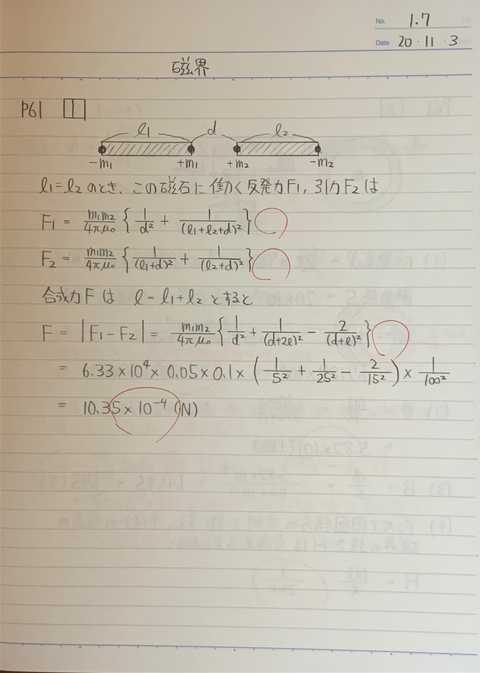 No. 1.7
Date 20・11・3
磁界
P61 1
l₁ d l₂
-m₁ +m₁ +m₂ -m₂
l₁=l₂のとき、この磁石に働く反発力F₁, 引力F₂は
F₁ = m₁m₂/4πμ₀ { 1/d² + 1/(l₁+l₂+d)² }
F₂ = m₁m₂/4πμ₀ { 1/(l₁+d)² + 1/(l₂+d)² }
合成力Fは l-l₁+l₂とすると
F = |F₁-F₂| = m₁m₂/4πμ₀ { 1/d² + 1/(d+2l)² - 2/(d+l)² }
= 6.33×10⁴×0.05×0.1×( 1/5² + 1/25² - 2/15² )× 1/100²
= 10.35×10⁻⁴(N)